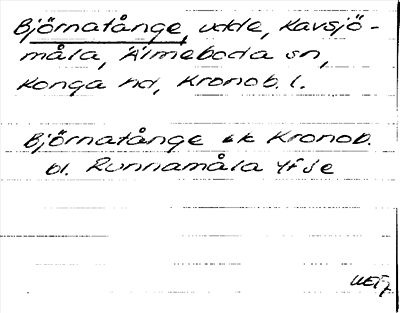 Björnatånge, udde, Kavsjö-
måla, Älmeboda sn,
Konga hd, Kronob. l.
Björnatånge sk Kronob.
bl. Runnamåla